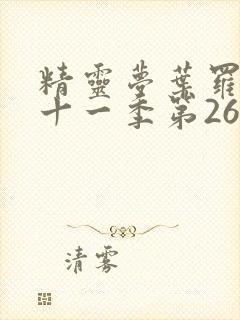 精靈夢葉羅
十一季第26
清雾